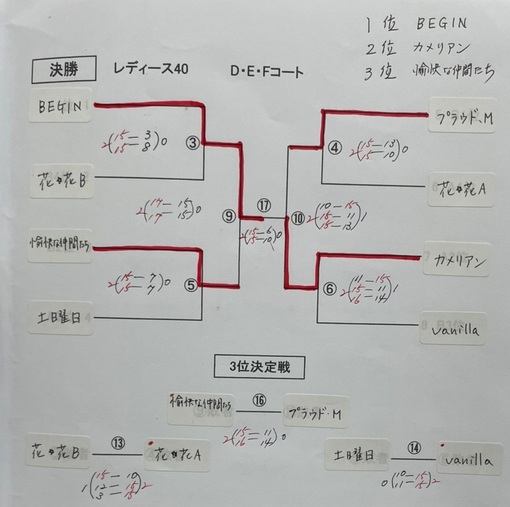 1位 BEGIN
2位 カメリアン
3位 愉快な仲間たち
決勝 レディース40 D・E・Fコート
BEGIN
プラウド.M
2(15-3 15-8)0 ③
④ 2(15-13 15-10)0
花*花B
花*花A
2(17-15 17-15)0 ⑨ ⑰ ⑩ (10-15 15-11 15-13)1
2(15-6 15-10)0
愉快な仲間たち
カメリアン
2(15-7 15-7)0 ⑤
⑥ 2(11-15 15-11 16-14)1
土日曜日
vanilla
3位決定戦
愉快な仲間たち ⑯ プラウド.M
2(15-11 16-14)0
花*花B ⑬ 花*花A
土日曜日 ⑭ vanilla
1(15-10 12-15 3-15)2
0(10-15 11-15)2